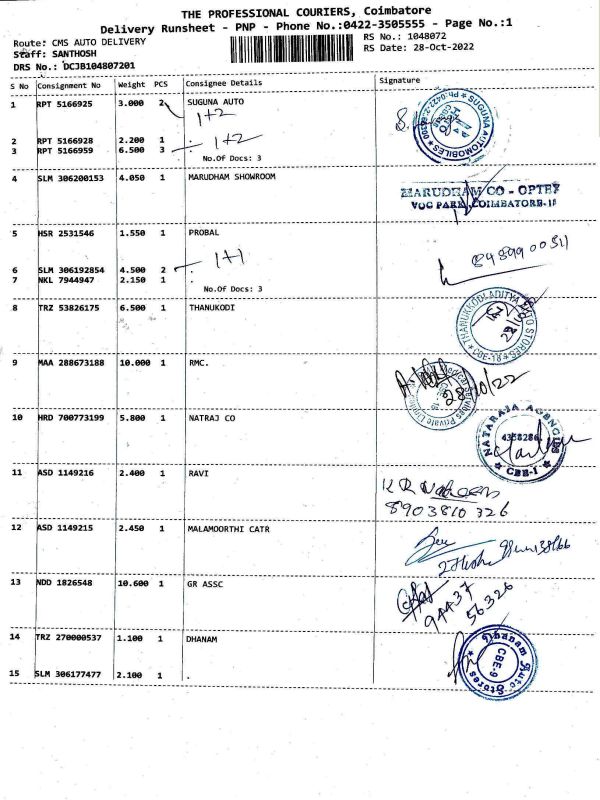 THE PROFESSIONAL COURIERS, Coimbatore
Delivery Runsheet - PNP - Phone No.:0422-3505555 - Page No.:1
Route: CMS AUTO DELIVERY
RS No.: 1048072
Staff: SANTHOSH
RS Date: 28-Oct-2022
DRS No.: DCJB104807201
S No Consignment No Weight PCS Consignee Details Signature
1 RPT 5166925 3.000 2 SUGUNA AUTO
1+2
SUGUNA AUTOMOBILES
2 RPT 5166928 2.200 1 .
3 RPT 5166959 6.500 3 . 1+2
No.Of Docs: 3
4 SLM 306200153 4.050 1 MARUDHAM SHOWROOM
MARUDHAM CO - OPTEX
VOC PARK, COIMBATORE-18
5 HSR 2531546 1.550 1 PROBAL
1+1
6 SLM 306192854 4.500 2 .
7 NKL 7944947 2.150 1 .
No.Of Docs: 3
8 TRZ 53826175 6.500 1 THANUKODI
THANUKKODI ADITYA AUTO STORES
CBE-18
9 MAA 288673188 10.000 1 RMC.
28/10/22
Medical Services Private Limited
10 HRD 700773199 5.800 1 NATRAJ CO
NATARAJA AGENCIES
4358286
CBE-1
11 ASD 1149216 2.400 1 RAVI
8903810326
12 ASD 1149215 2.450 1 MALAMOORTHI CATR
13 NDD 1826548 10.600 1 GR ASSC
94437
56326
14 TRZ 270000537 1.100 1 DHANAM
Dhanam Auto Stores
CBE-9
15 SLM 306177477 2.100 1 .